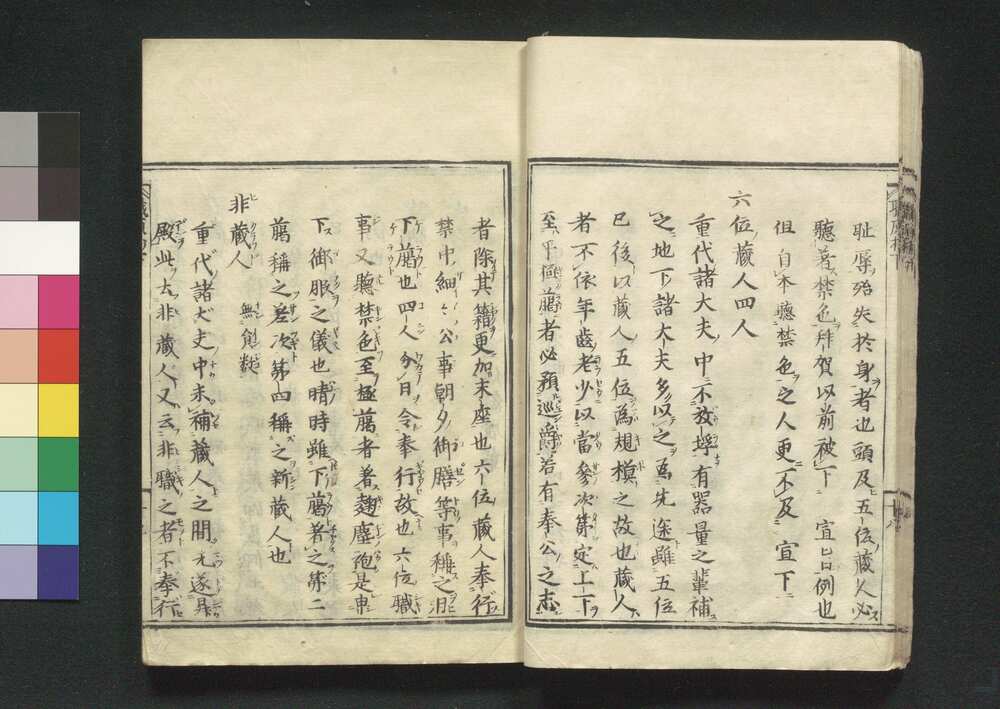 耻辱殆失於身者也頭及五位蔵人必
聴着禁色拝賀以前被下宣旨例也
但自本聴禁色之人更不及宣下
六位蔵人四人
重代諸大夫中不放埒有器量之輩補
之地下諸大夫多以之為先途雖五位
已後以蔵人五位為規模之故也蔵人
者不依年齒老少以當参次第定上下
至乎極﨟者必預巡爵若有奉公之志
者除其籍更加末座也六位蔵人奉行
禁中細々公事朝夕御膳等事稱之日
下﨟也四人分日令奉行故也六位職
事又聴禁色至極﨟者着麹塵袍是申
下御服之儀也晴時雖下﨟着之第二
﨟稱之差次第四稱之新蔵人也
非蔵人
重代諸大夫中未補蔵人之間先遂昇
殿此云非蔵人又云非職之者不奉行